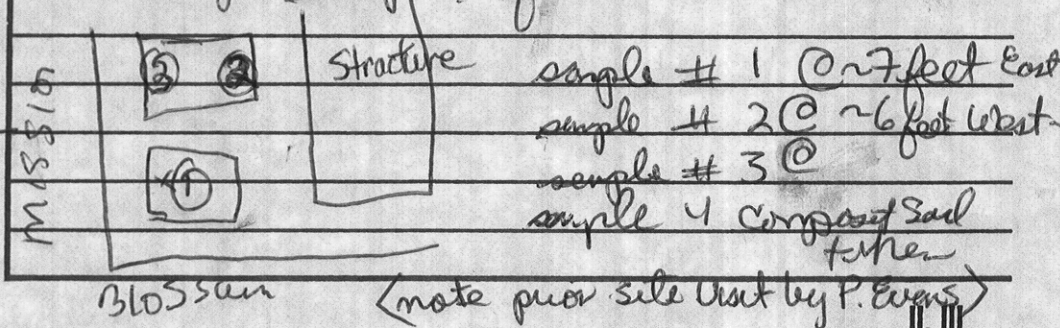 3 2 Structure sample # 1 @ ~7 feet East
sample # 2 @ ~6 feet West
sample # 3 @
1 sample 4 Composit Soil
taken
MISSION
Blossom <note prior site visit by P. Evens>